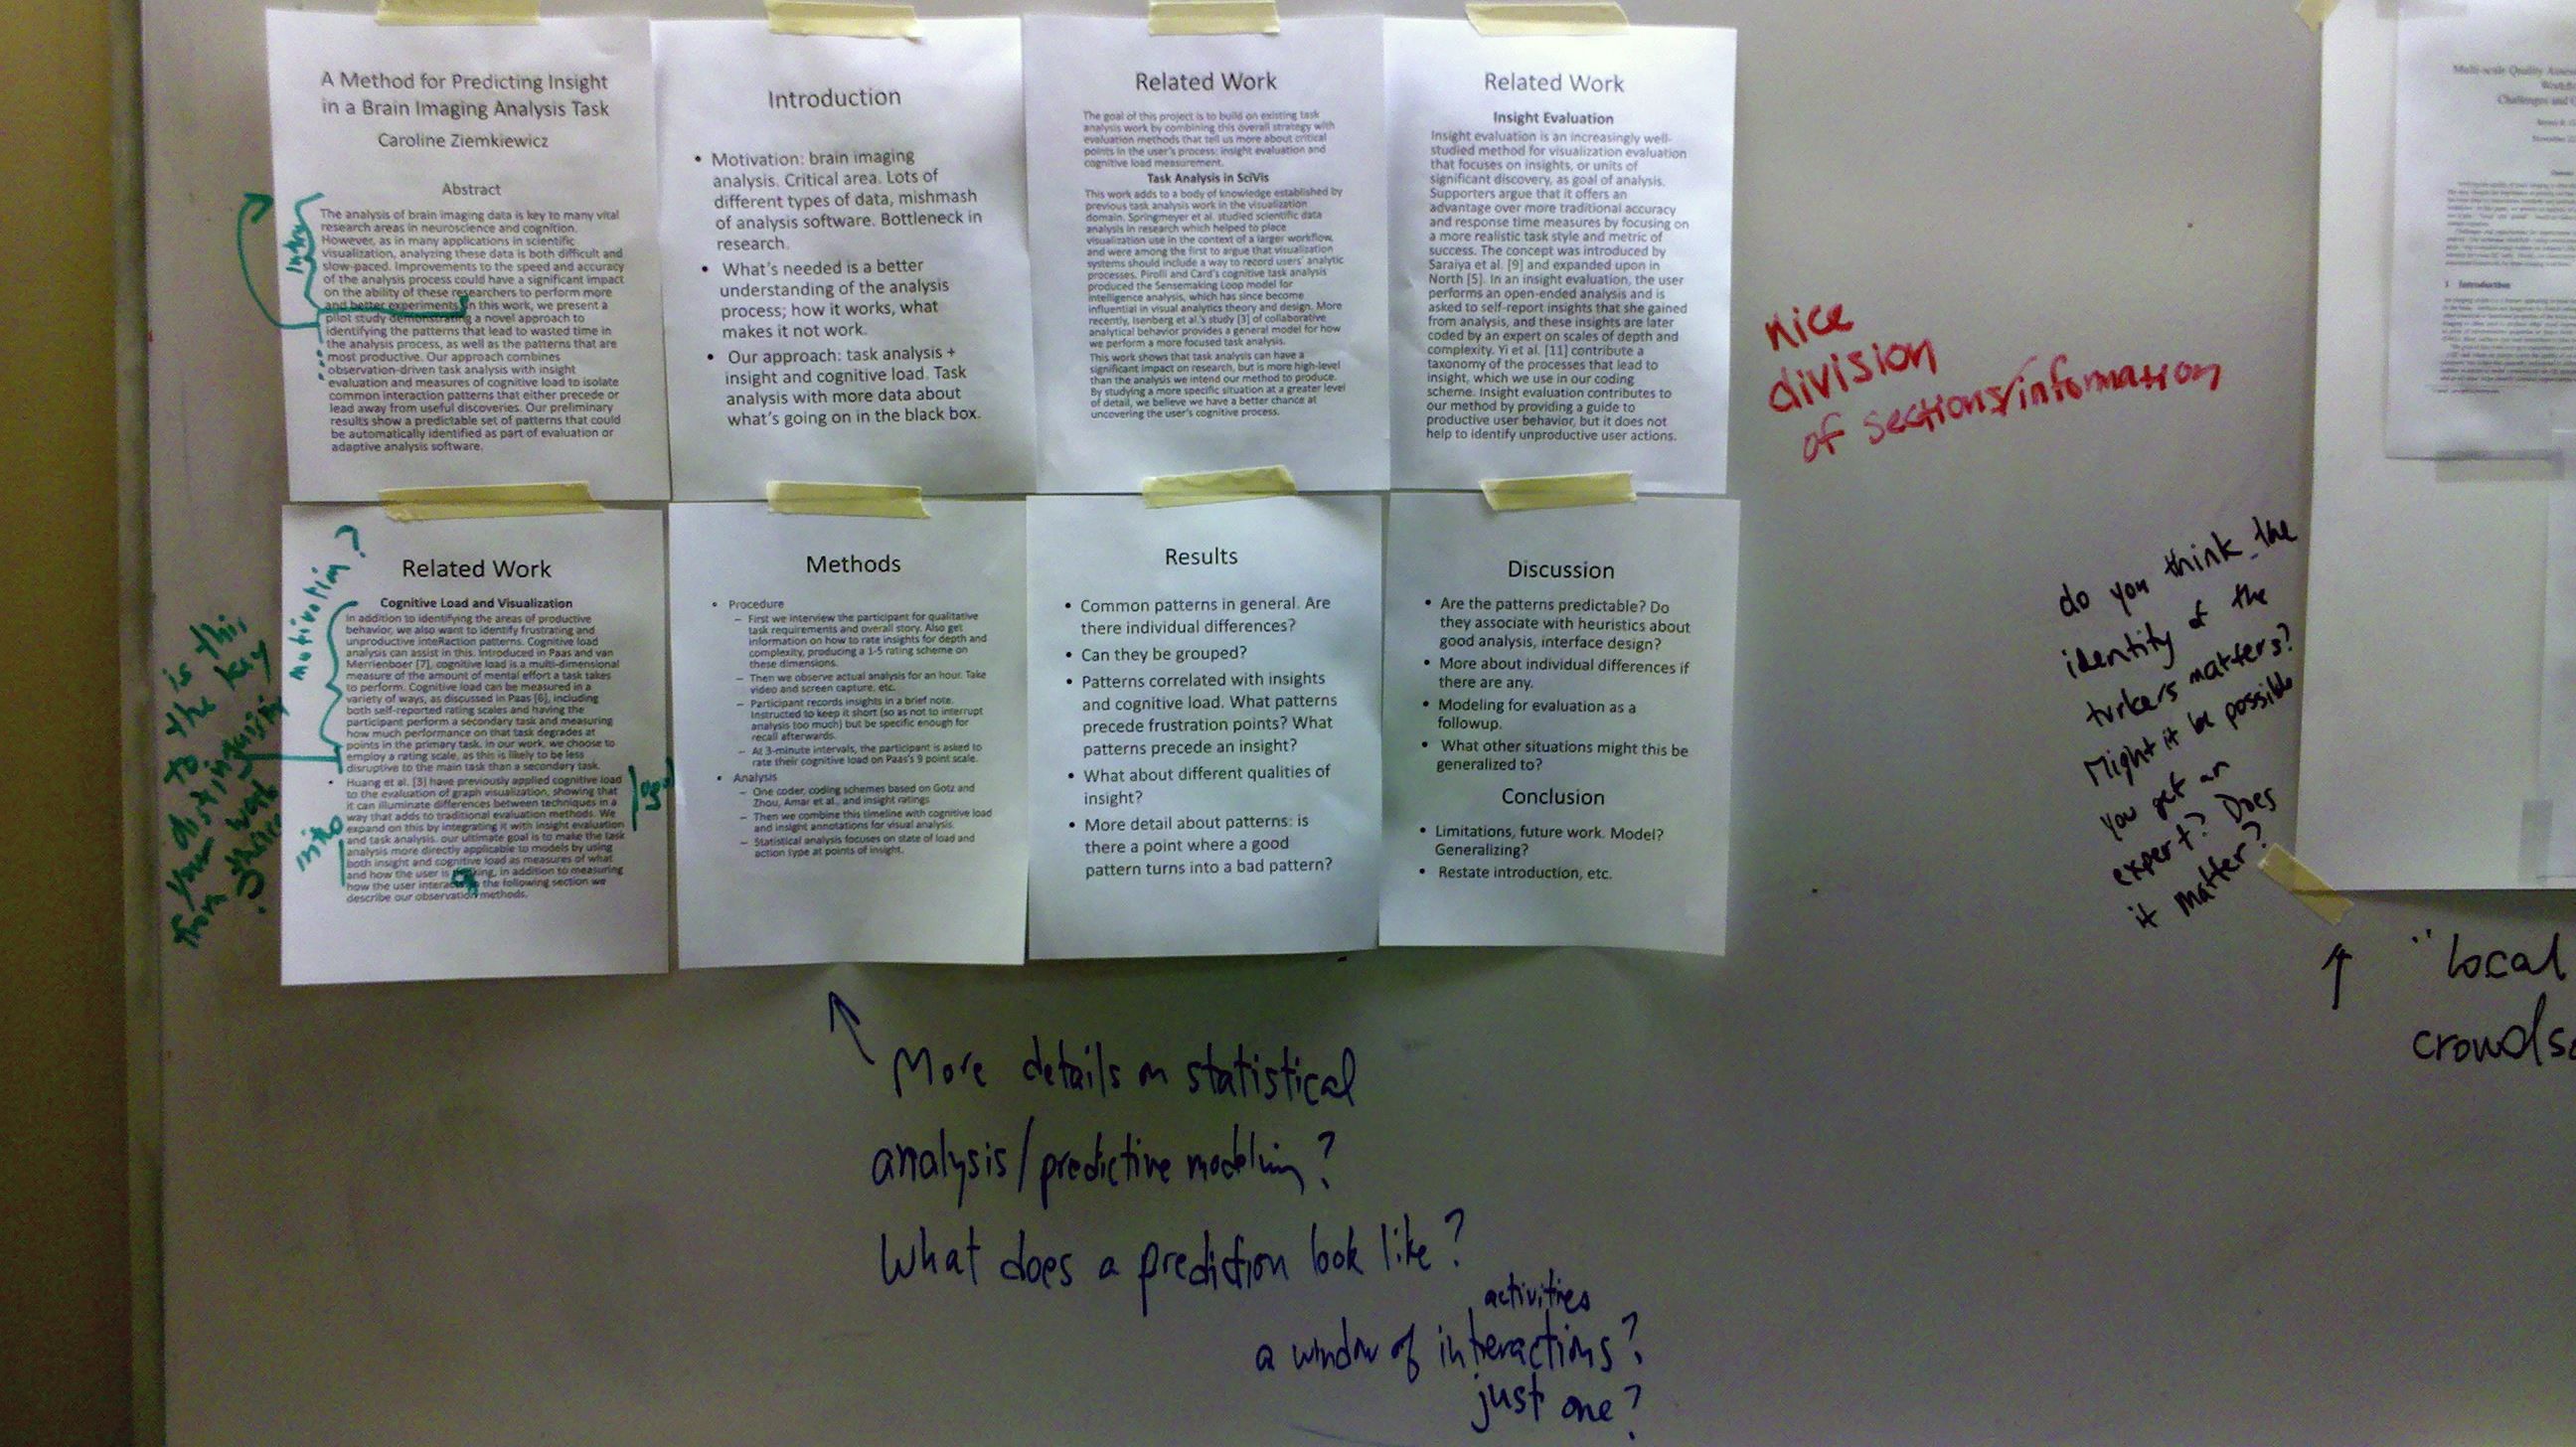 A Method for Predicting Insight
in a Brain Imaging Analysis Task
Caroline Ziemkiewicz
Abstract
The analysis of brain imaging data is key to many vital
research areas in neuroscience and cognition.
However, as in many applications in scientific
visualization, analyzing these data is both difficult and
slow-paced. Improvements to the speed and accuracy
of the analysis process could have a significant impact
on the ability of these researchers to perform more
and better experiments. In this work, we present a
pilot study demonstrating a novel approach to
identifying the patterns that lead to wasted time in
the analysis process, as well as the patterns that are
most productive. Our approach combines
observation-driven task analysis with insight
evaluation and measures of cognitive load to isolate
common interaction patterns that either precede or
lead away from useful discoveries. Our preliminary
results show a predictable set of patterns that could
be automatically identified as part of evaluation or
adaptive analysis software.
Intro
Introduction
• Motivation: brain imaging
analysis. Critical area. Lots of
different types of data, mishmash
of analysis software. Bottleneck in
research.
• What's needed is a better
understanding of the analysis
process; how it works, what
makes it not work.
• Our approach: task analysis +
insight and cognitive load. Task
analysis with more data about
what's going on in the black box.
Related Work
The goal of this project is to build on existing task
analysis work by combining this overall strategy with
evaluation methods that tell us more about critical
points in the user's process: insight evaluation and
cognitive load measurement.
Task Analysis in SciVis
This work adds to a body of knowledge established by
previous task analysis work in the visualization
domain. Springmeyer et al. studied scientific data
analysis in research which helped to place
visualization use in the context of a larger workflow,
and were among the first to argue that visualization
systems should include a way to record users' analytic
processes. Pirolli and Card's cognitive task analysis
produced the Sensemaking Loop model for
intelligence analysis, which has since become
influential in visual analytics theory and design. More
recently, Isenberg et al.'s study [3] of collaborative
analytical behavior provides a general model for how
we perform a more focused task analysis.
This work shows that task analysis can have a
significant impact on research, but is more high-level
than the analysis we intend our method to produce.
By studying a more specific situation at a greater level
of detail, we believe we have a better chance at
uncovering the user's cognitive process.
Related Work
Insight Evaluation
Insight evaluation is an increasingly well-
studied method for visualization evaluation
that focuses on insights, or units of
significant discovery, as goal of analysis.
Supporters argue that it offers an
advantage over more traditional accuracy
and response time measures by focusing on
a more realistic task style and metric of
success. The concept was introduced by
Saraiya et al. [9] and expanded upon in
North [5]. In an insight evaluation, the user
performs an open-ended analysis and is
asked to self-report insights that she gained
from analysis, and these insights are later
coded by an expert on scales of depth and
complexity. Yi et al. [11] contribute a
taxonomy of the processes that lead to
insight, which we use in our coding
scheme. Insight evaluation contributes to
our method by providing a guide to
productive user behavior, but it does not
help to identify unproductive user actions.
nice
division
of sections/information
1 Introduction
Related Work
Cognitive Load and Visualization
In addition to identifying the areas of productive
behavior, we also want to identify frustrating and
unproductive inteRaction patterns. Cognitive load
analysis can assist in this. Introduced in Paas and van
Merrienboer [7], cognitive load is a multi-dimensional
measure of the amount of mental effort a task takes
to perform. Cognitive load can be measured in a
variety of ways, as discussed in Paas [6], including
both self-reported rating scales and having the
participant perform a secondary task and measuring
how much performance on that task degrades at
points in the primary task. In our work, we choose to
employ a rating scale, as this is likely to be less
disruptive to the main task than a secondary task.
• Huang et al. [3] have previously applied cognitive load
to the evaluation of graph visualization, showing that
it can illuminate differences between techniques in a
way that adds to traditional evaluation methods. We
expand on this by integrating it with insight evaluation
and task analysis. our ultimate goal is to make the task
analysis more directly applicable to models by using
both insight and cognitive load as measures of what
and how the user is in addition to measuring
how the user the following section we
describe our observation methods.
motivation?
is this
the key
intro
Methods
• Procedure
– First we interview the participant for qualitative
task requirements and overall story. Also get
information on how to rate insights for depth and
complexity, producing a 1-5 rating scheme on
these dimensions.
– Then we observe actual analysis for an hour. Take
video and screen capture, etc.
– Participant records insights in a brief note.
Instructed to keep it short (so as not to interrupt
analysis too much) but be specific enough for
recall afterwards.
– At 3-minute intervals, the participant is asked to
rate their cognitive load on Paas's 9 point scale.
• Analysis
– One coder, coding schemes based on Gotz and
Zhou, Amar et al., and insight ratings
– Then we combine this timeline with cognitive load
and insight annotations for visual analysis.
– Statistical analysis focuses on state of load and
action type at points of insight.
Results
• Common patterns in general. Are
there individual differences?
• Can they be grouped?
• Patterns correlated with insights
and cognitive load. What patterns
precede frustration points? What
patterns precede an insight?
• What about different qualities of
insight?
• More detail about patterns: is
there a point where a good
pattern turns into a bad pattern?
Discussion
• Are the patterns predictable? Do
they associate with heuristics about
good analysis, interface design?
• More about individual differences if
there are any.
• Modeling for evaluation as a
followup.
• What other situations might this be
generalized to?
Conclusion
• Limitations, future work. Model?
Generalizing?
• Restate introduction, etc.
do you think the
identity of the
turkers matters?
Might it be possible
you get an
expert? Does
it matter?
"local
crowds
More details on statistical
analysis/predictive modeling?
What does a prediction look like?
activities
a window of interactions?
just one?